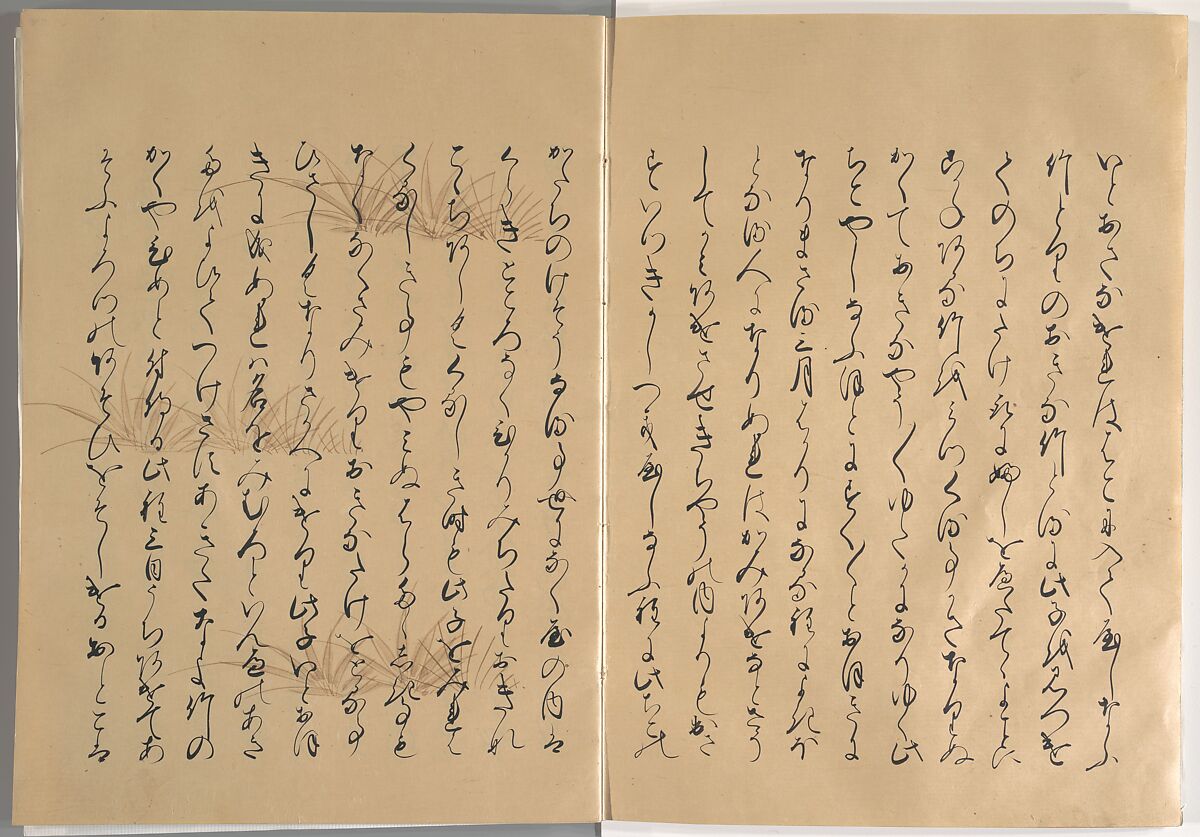 いとおさなけれははこに入てやしなふ
竹とりのおきな竹とるに此子を見つけ
てのちにたけ取にふしをへたてゝよことに
こかねある竹をみつくる事かさなりぬ
かくておきなやう〳〵ゆたかになりゆく此
ちこやしなふほとにすく〳〵とおほきに
なりまさる三月はかりになる程によきほ
となる人になりぬれはかみあけなとさう
してかみあけさせきちやうの内よりも出さ
すいつきかしつきやしなふ程に此ちこの
かたちのけそうなる事世になくやの内は
くらきところなくひかりみちたりおきな
こゝちあしくくるしき時も此子をみれは
くるしき事もやみぬはらたゝしき事も
なくなくさみけりおきなたけをとる事
ひさしくなりさかへにけり此子いとおほ
きに成ぬれは名をみむろといんへのあき
たをよひてつけさすあきたなよ竹の
かくやひめと付侍る此程三日うちあけてあ
そふよろつのあそひをそしけるおとこは